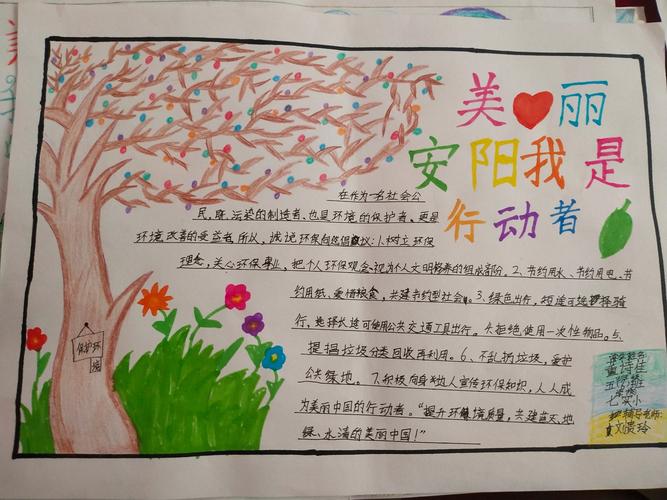 美丽
安阳我是
行动者
在作为一名社会公
民,既污染的制造者、也是环境的保护者、更是
环境改善的受益者,所以,诚说环保向您倡议:1.树立环保
理念,关心环保事业,把个人环保观念视为个人文明修养的组成部分。2、节约用水、节约用电、节
约用纸、爱惜粮食,共建节约型社会。3、绿色出行,短途可地择骑
行,选择长途可使用公共交通工具出行。4.拒绝使用一次性物品。5、
提揭垃圾分类回收再利用。6、不乱扔垃圾,爱护
公共绿地。7.积极向身边人宣传环保知识,人人成
为美丽中国的行动者。“提升环境质量,共建蓝天、地
绿、水清的美丽中国!”
保护环
境
五 班
辅导老师: